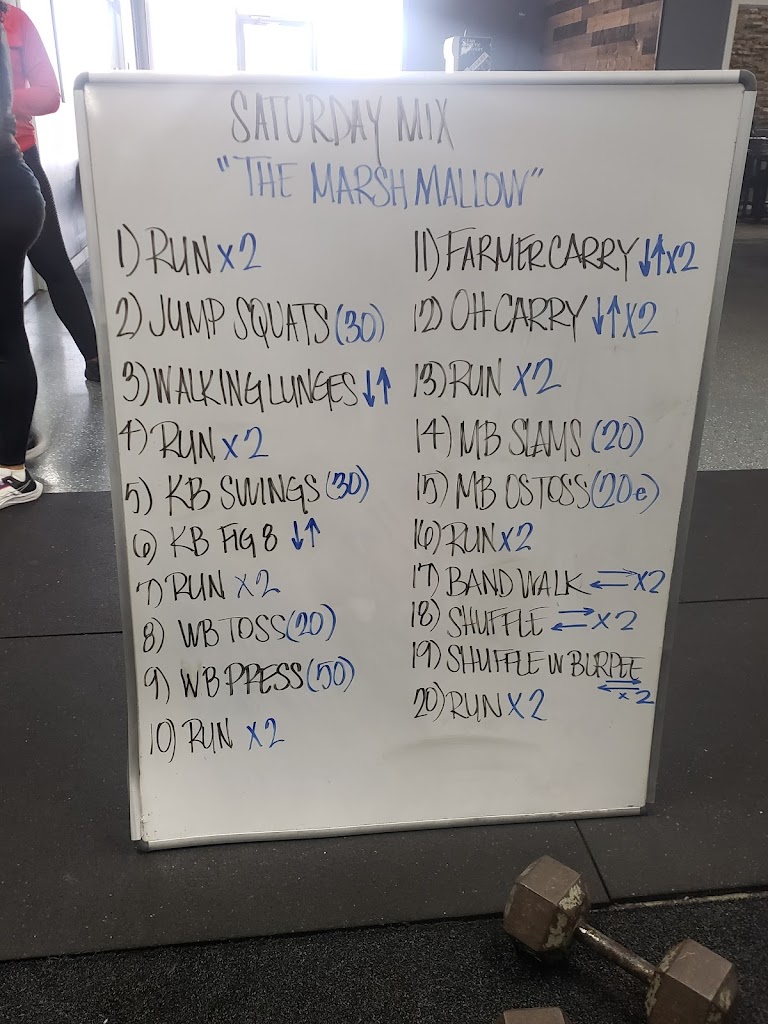 SATURDAY MIX
"THE MARSHMALLOW"
1) RUN x2
2) JUMP SQUATS (30)
3) WALKING LUNGES ↓↑
4) RUN x2
5) KB SWINGS (30)
6) KB FIG 8 ↓↑
7) RUN x2
8) WB TOSS (20)
9) WB PRESS (50)
10) RUN x2
11) FARMER CARRY ↓↑ x2
12) OH CARRY ↓↑ x2
13) RUN x2
14) MB SLAMS (20)
15) MB OS TOSS (20e)
16) RUN x2
17) BAND WALK ⇄ x2
18) SHUFFLE ⇄ x2
19) SHUFFLE W BURPEE ⇄ x2
20) RUN x2